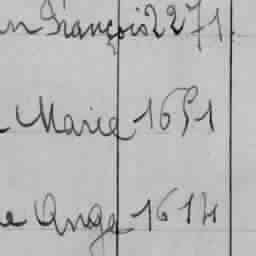 François 2271
Marie 1651
Ange 1614